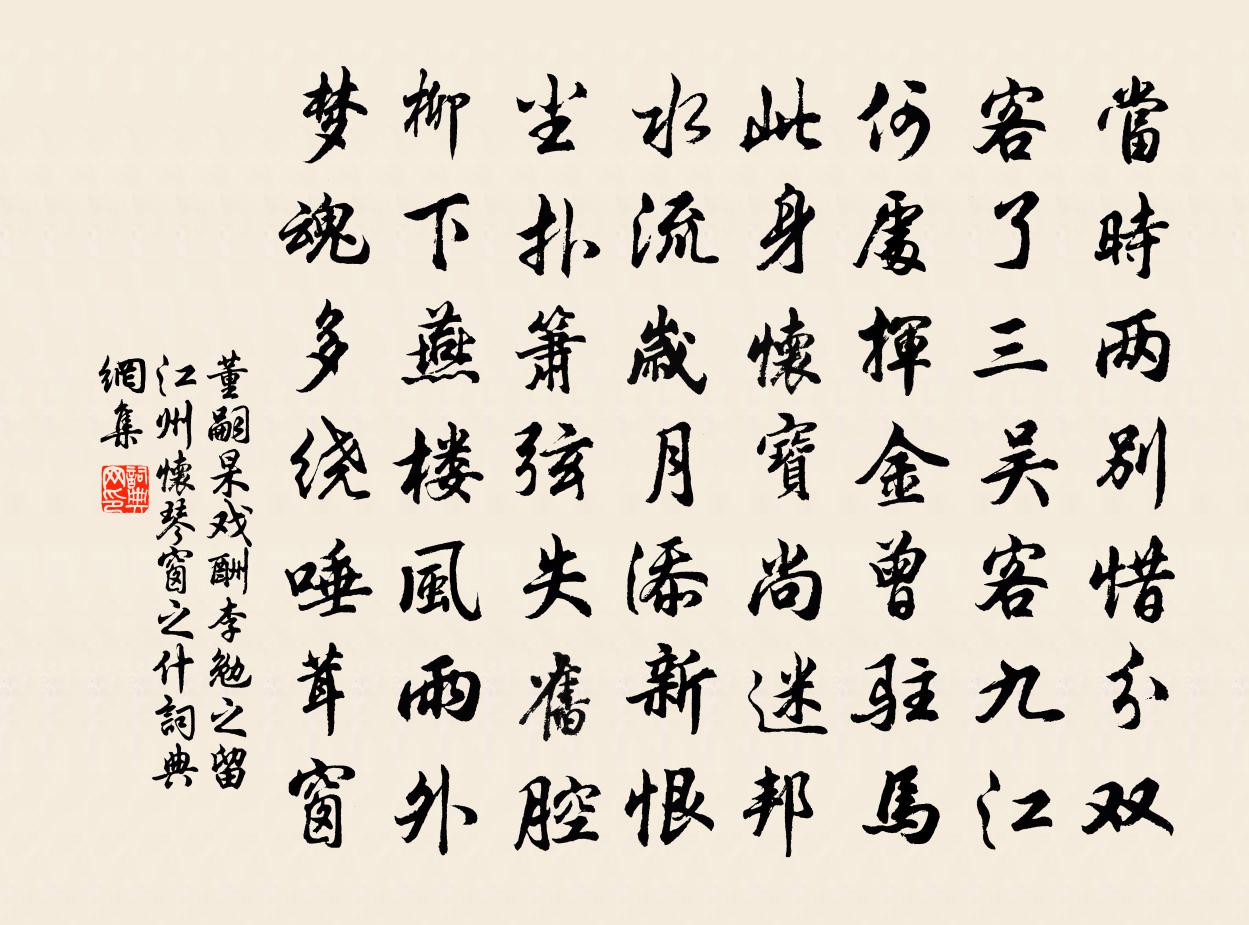 當時两别惜分双
客了三吴客九江
何處揮金曾駐馬
此身懷寶尚迷邦
水流歲月添新恨
尘扑箫弦失舊腔
柳下燕楼風雨外
梦魂多绕唾茸窗
董嗣杲戏酬李勉之留
江州懷琴窗之什詞典
網集
詞典
网印